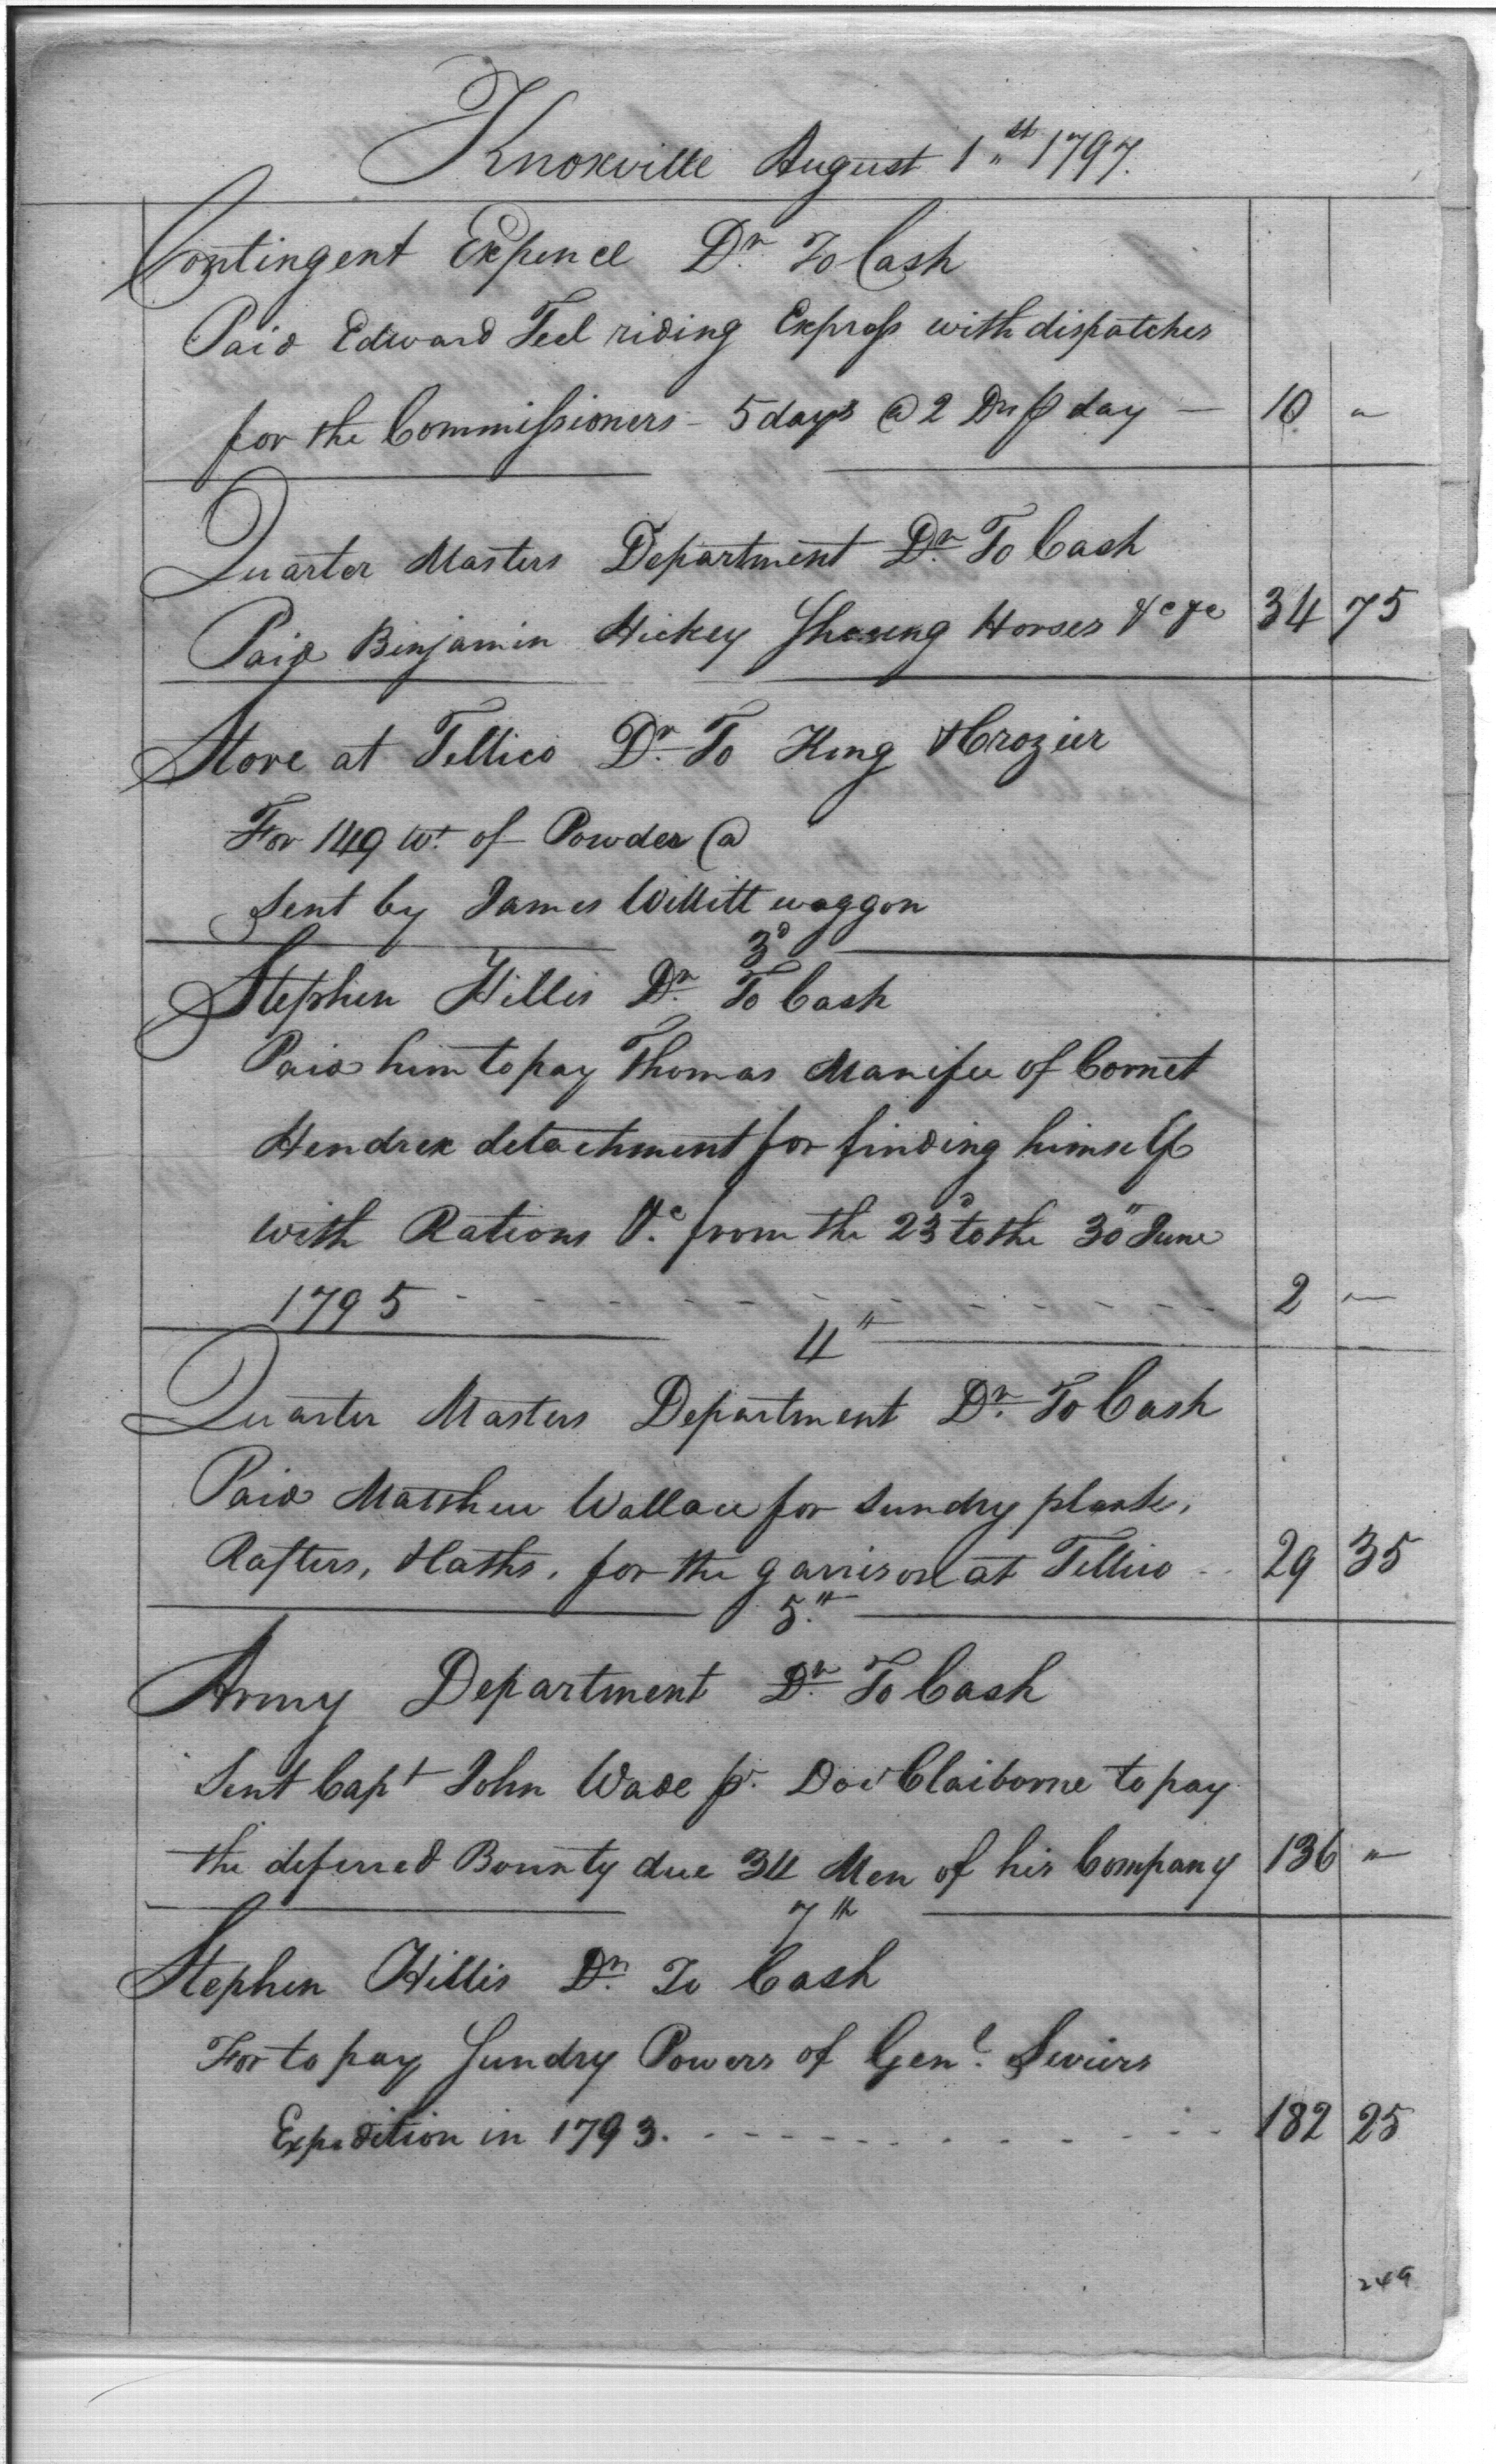 Knoxville August 1st 1797.
Contingent Expence Dr. To Cash
Paid Edward Teel riding Express with dispatches
for the Commissioners - 5 days @ 2 Drs p day — 10 "
Quarter Masters Department Dr. To Cash
Paid Binjamin Hickey Shoeing Horses &c &c 34 75
Store at Tellico Dr. To King & Crozier
For 149 wt. of Powder @
Sent by James Willitt waggon
3d
Stephen Hillis Dr. To Cash
Paid him to pay Thomas Manifee of Cornet
Hendrex detachment for finding himself
with Rations &c. from the 23d to the 30th June
1795 - - - - - - - - - - - - 2 "
4th
Quarter Masters Department Dr. To Cash
Paid Matthew Wallace for Sundry plank,
Rafters, & laths, for the garrison at Tellico - - 29 35
5th
Army Department Dr. To Cash
Sent Capt John Wade pr. Docr Claiborne to pay
the deferred Bounty due 34 Men of his Company 136 "
7th
Stephen Hillis Dr. To Cash
For to pay Sundry Powers of Genl. Seviers
Expedition in 1793. - - - - - - - - - - - 182 25
249